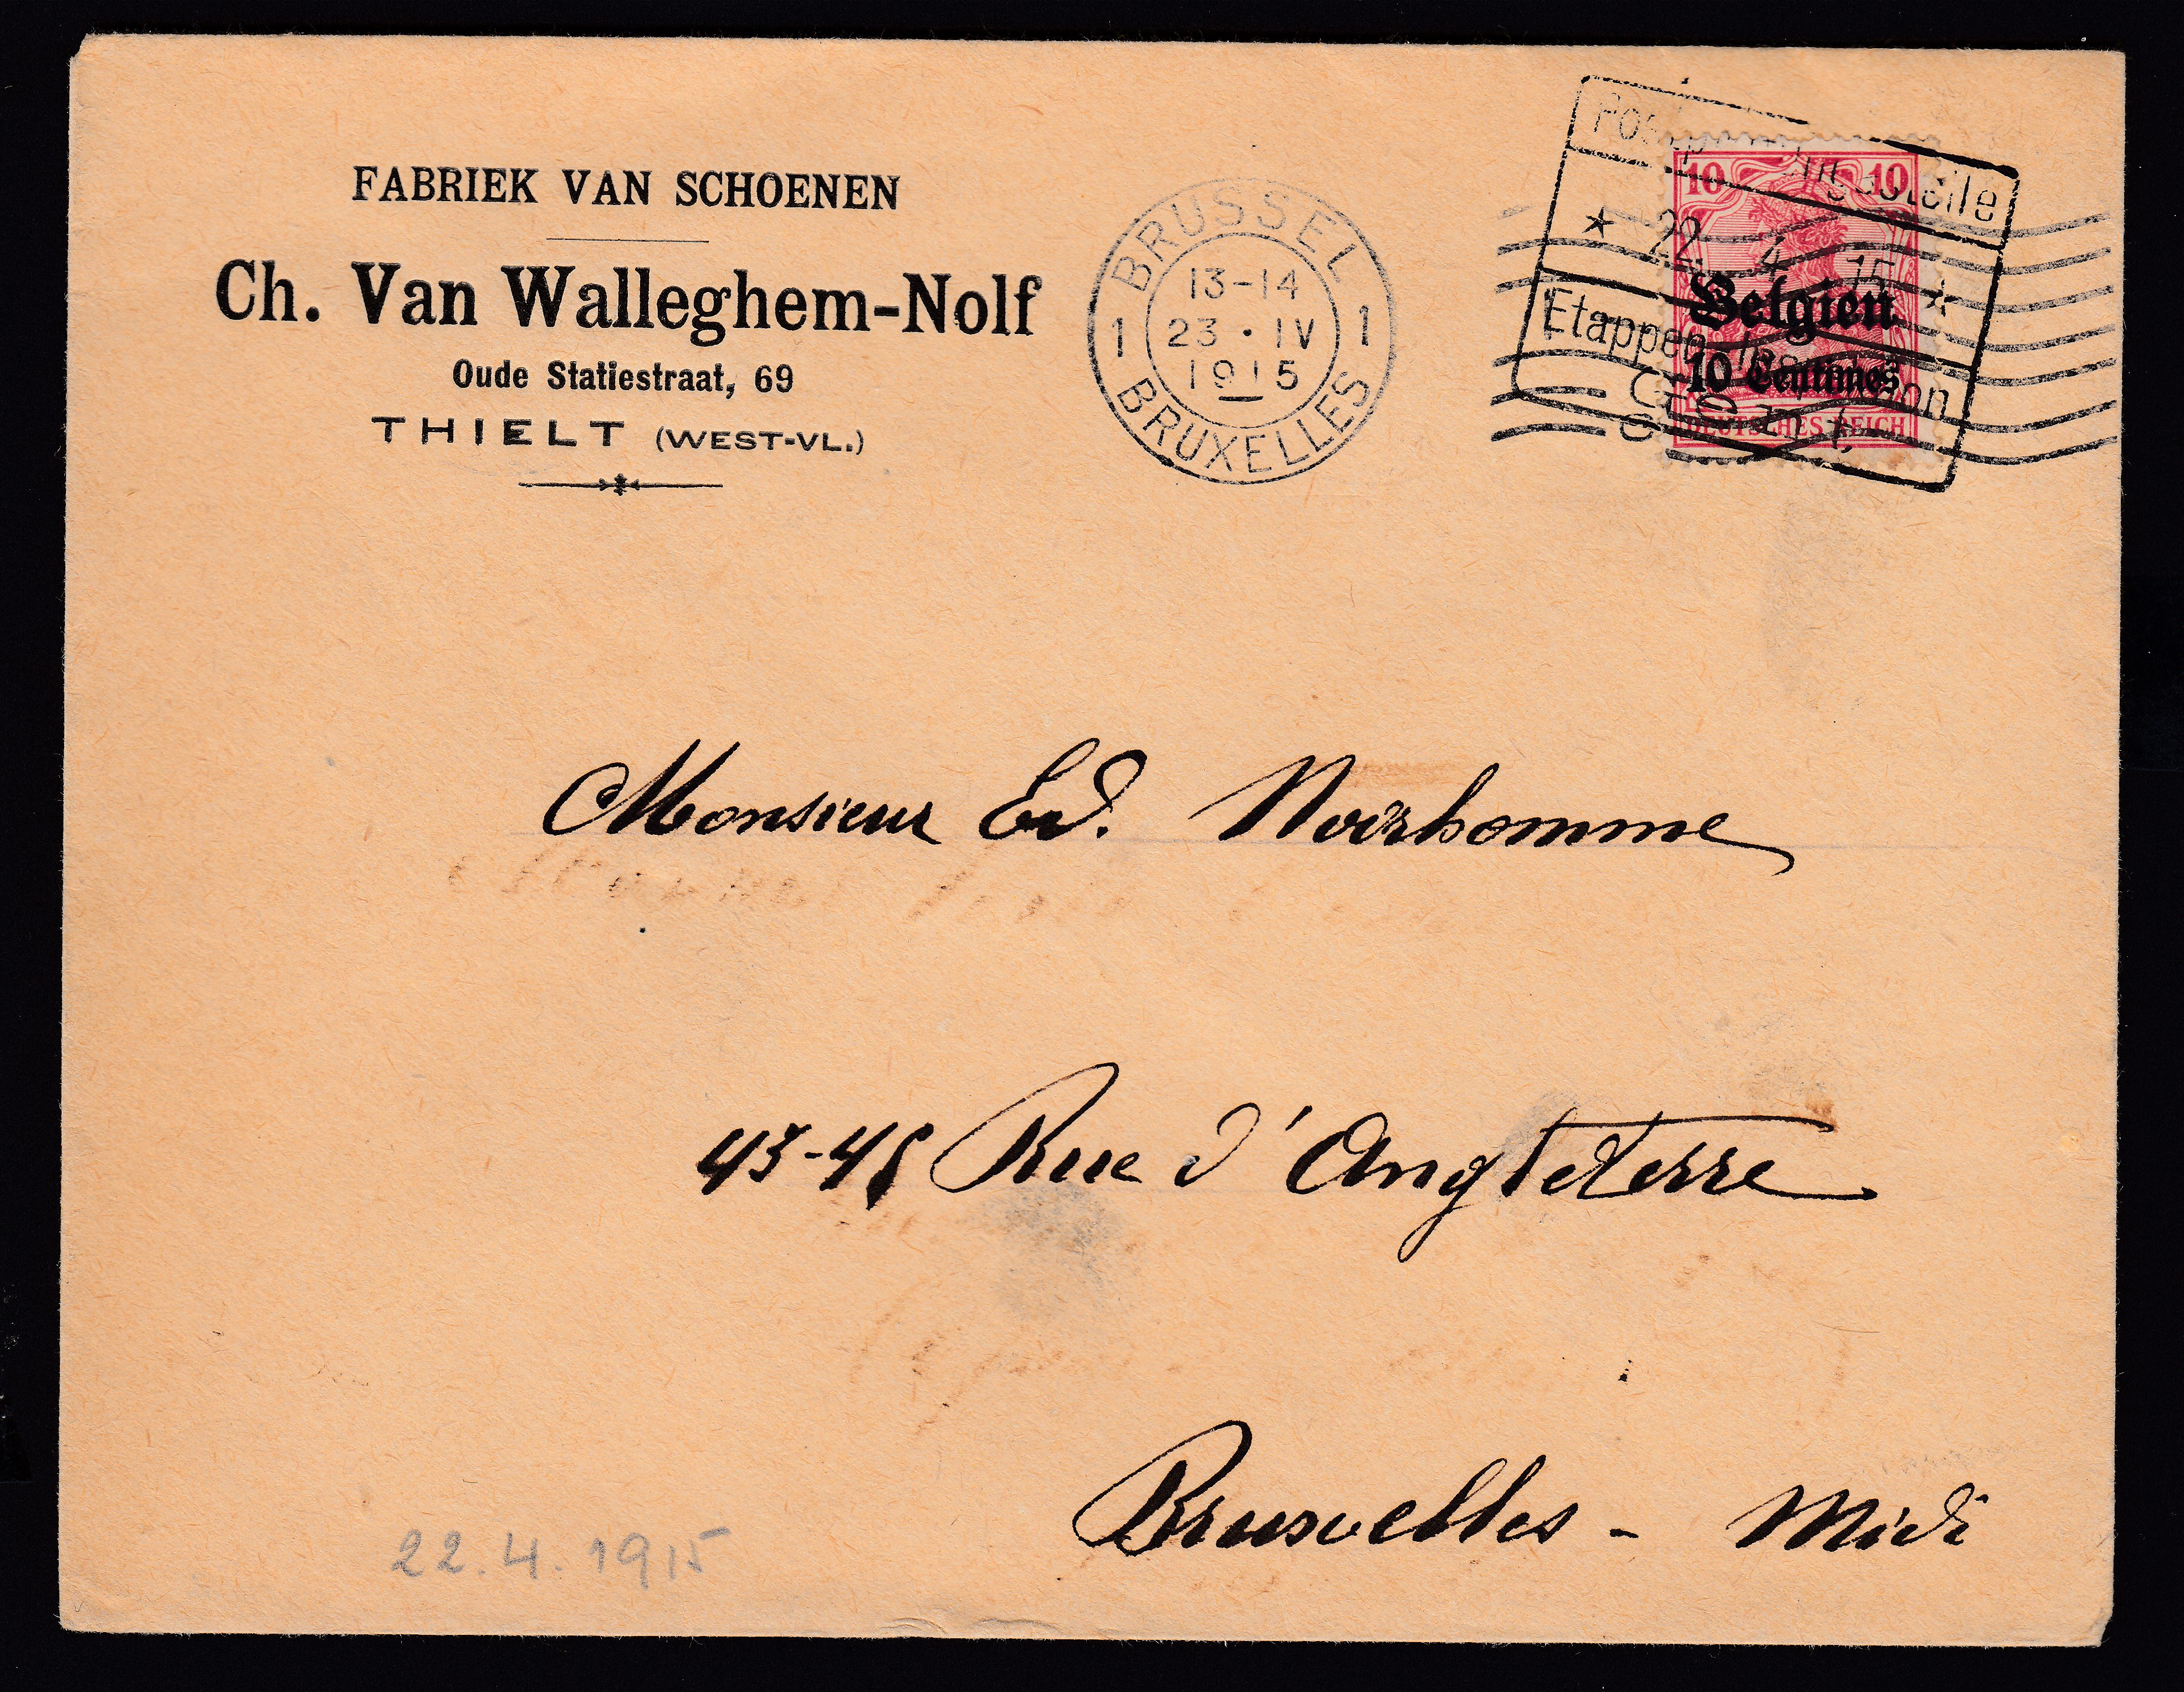 FABRIEK VAN SCHOENEN
Ch. Van Walleghem-Nolf
Oude Statiestraat, 69
THIELT (WEST-VL.)
BRUSSEL
13-14
1 23 · IV 1
1915
BRUXELLES
★ 22. 4. 15 ★
Gent
10 10
Belgien
10 Centimes
DEUTSCHES REICH
Monsieur Ed. Noirhomme
43-45 Rue d'Angleterre
Bruxelles - Midi
22.4.1915